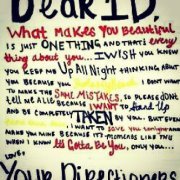 DEAR 1D
WHAT MAKES YOU BEAUTIFUL
IS JUST ONE THING AND THAT'S EVERY
THING ABOUT YOU... I WISH YOU KNEW
YOU KEEP ME UP ALL NIGHT THINKING ABOUT
YOU BECAUSE YOU I DON'T WANT
TO MAKE THE SAME MISTAKES, SO PLEASE DON'T
TELL ME A LIE BECAUSE I WANT TO STAND UP
AND BE COMPLETELY TAKEN BY YOU. BUT EVEN
I WANT TO SAVE YOU TONIGHT AND
MAKE YOU MINE BECAUSE IT'S MOMENTS LIKE THIS
WHEN I KNOW IT'S GOTTA BE YOU, ONLY YOU...
LOVE,
YOUR DIRECTIONERS